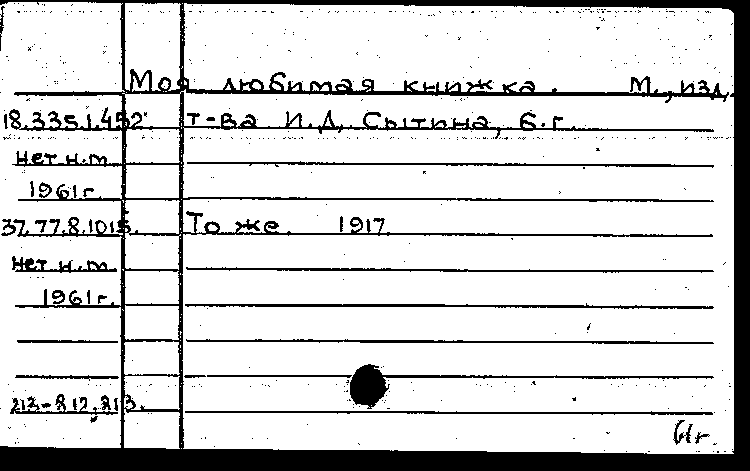 Моя любимая книжка. М., изд.
18.335.1.452. т-ва И.Д. Сытина, б.г.
нет н.т
1961г.
37.77.8.1015. То же. 1917
нет н.т
1961г.
61г.